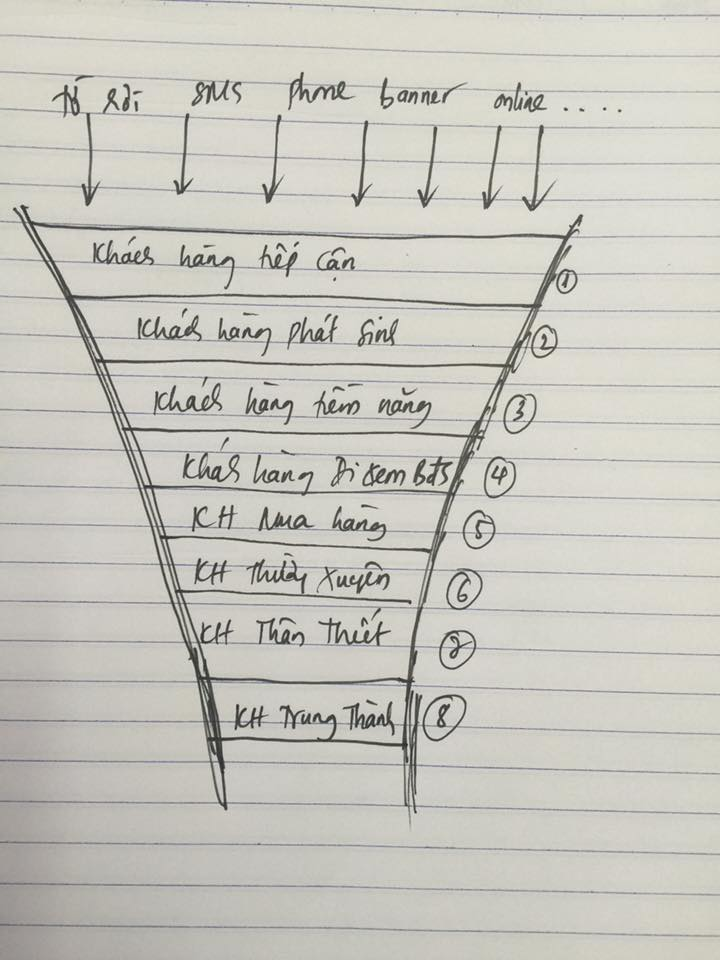 tờ rơi SMS phone banner online . . . . .
Khách hàng tiếp cận ①
Khách hàng phát sinh ②
Khách hàng tiềm năng ③
Khách hàng Đi xem BĐS ④
KH Mua hàng ⑤
KH Thường Xuyên ⑥
KH Thân Thiết ⑦
KH Trung Thành ⑧